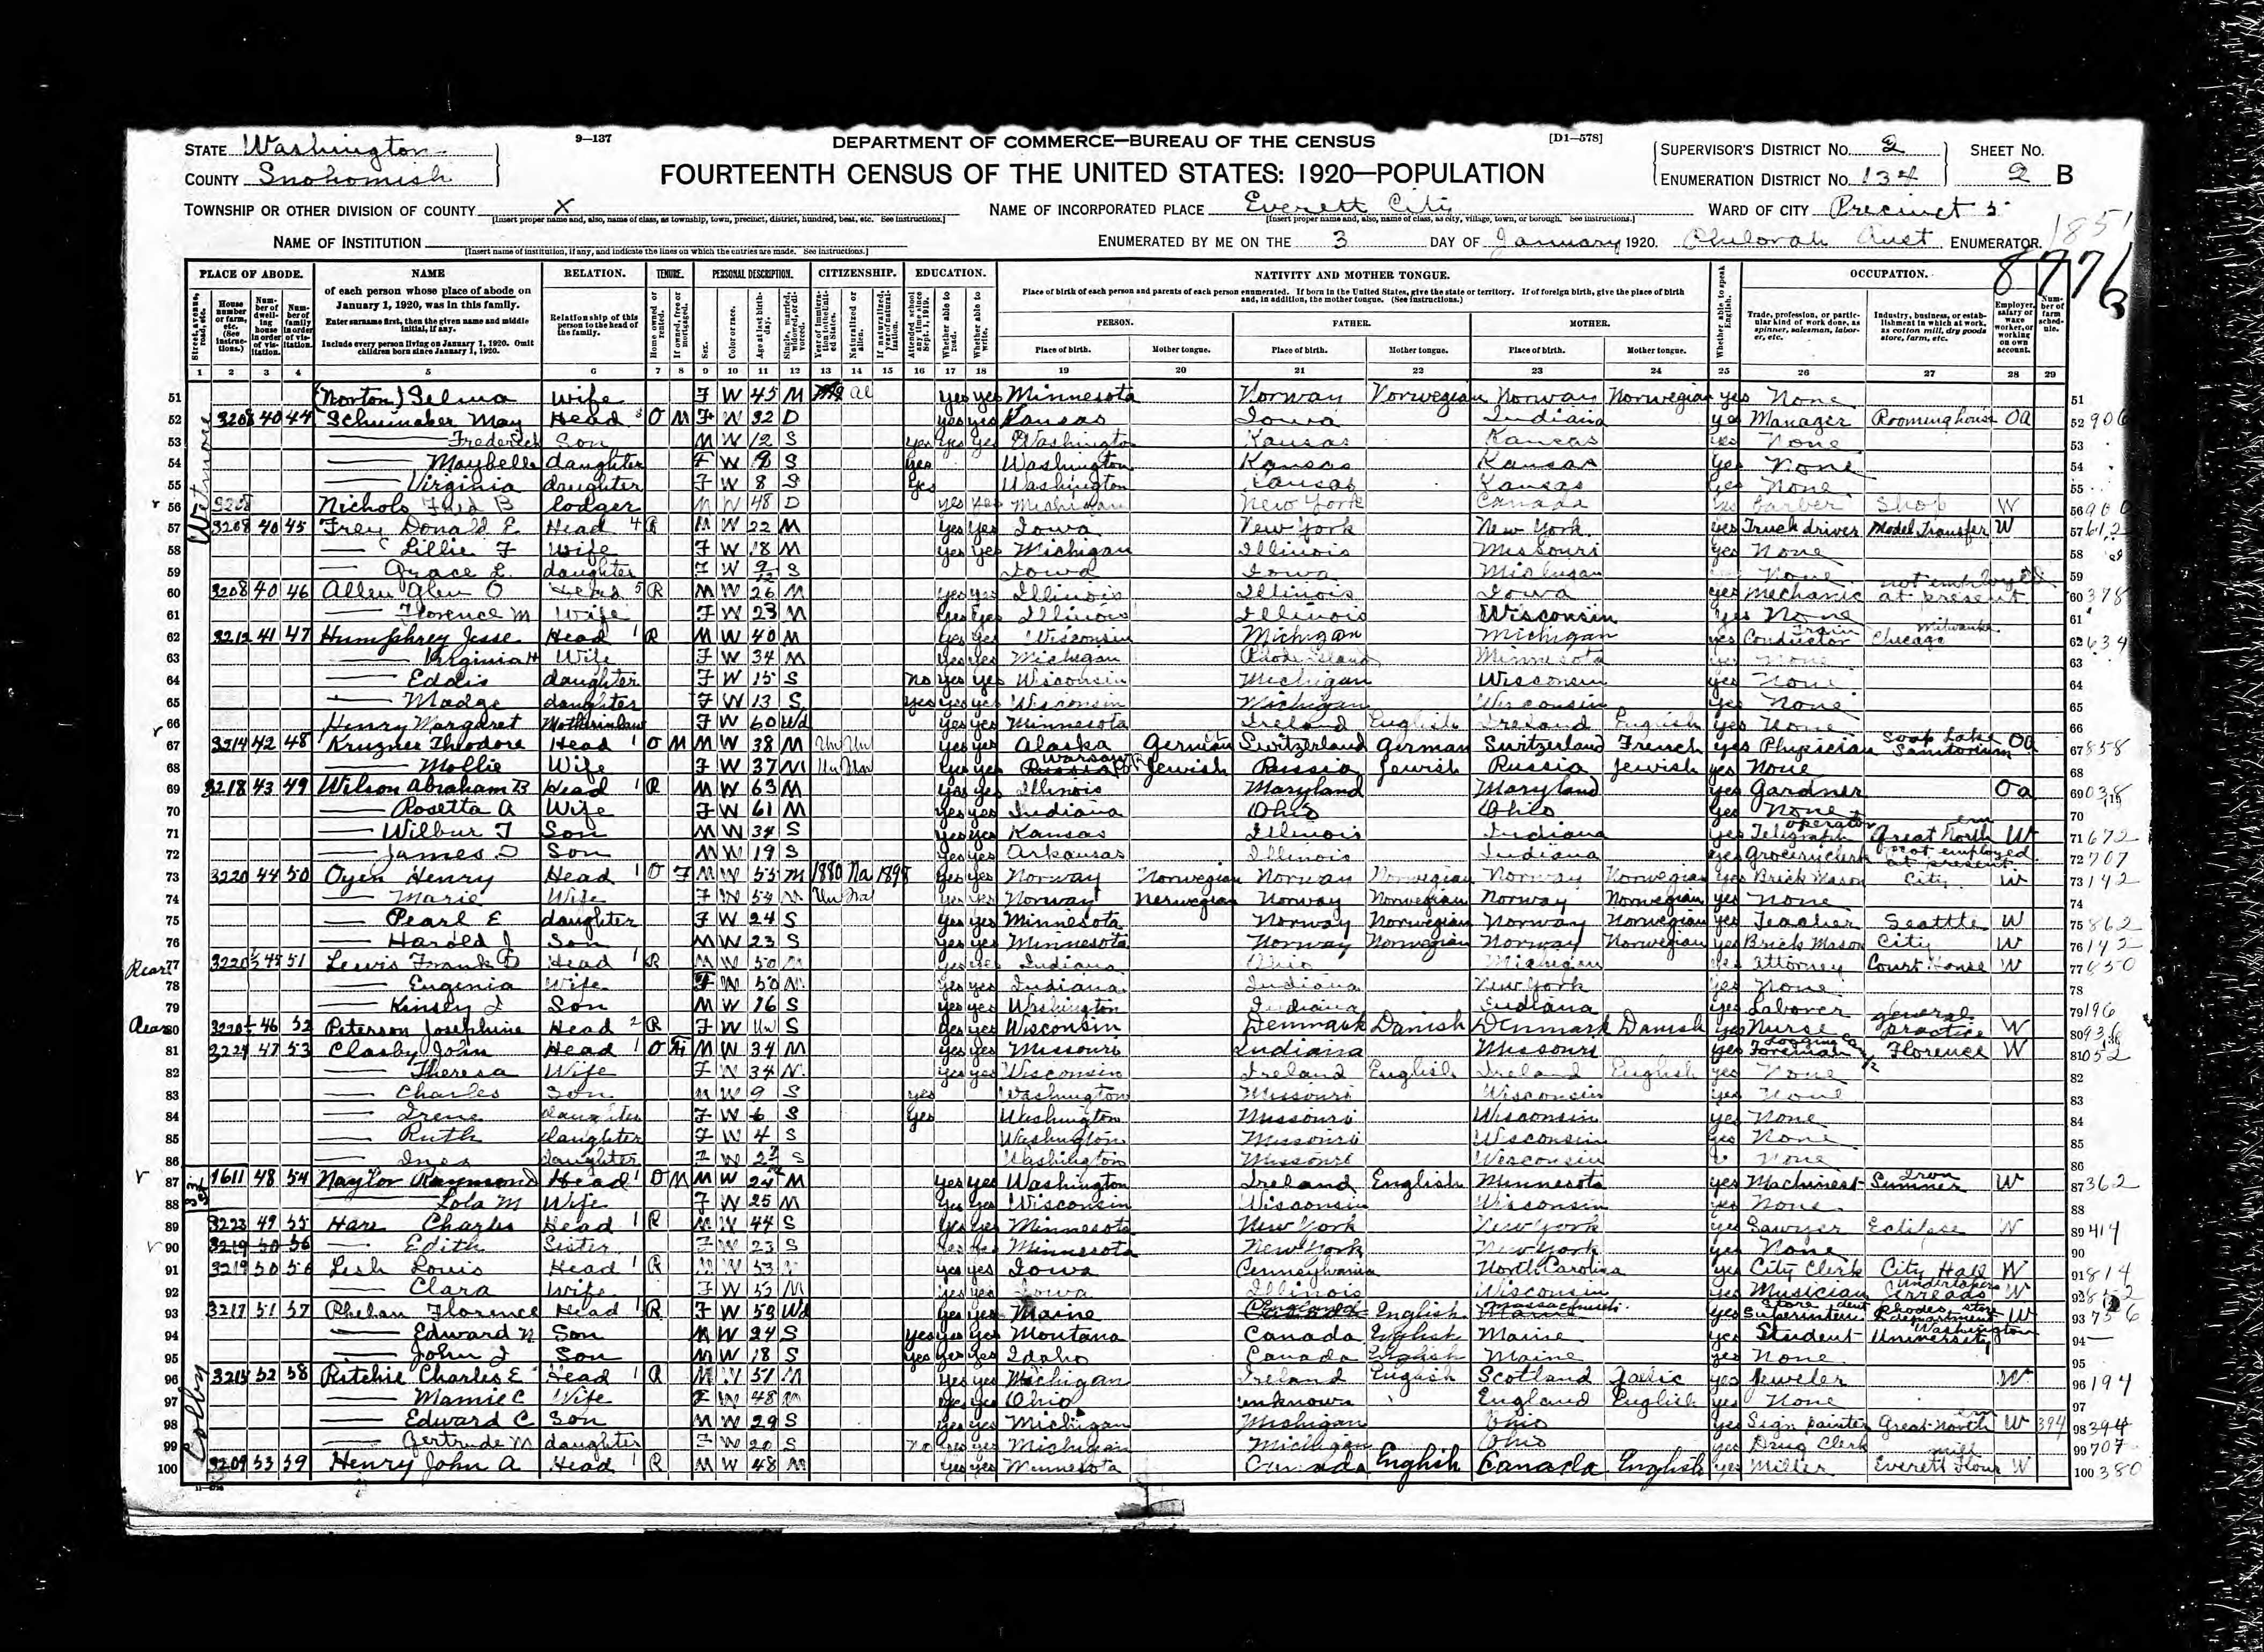 STATE Washington
COUNTY Snohomish
9—137
DEPARTMENT OF COMMERCE—BUREAU OF THE CENSUS
[D1—578]
FOURTEENTH CENSUS OF THE UNITED STATES: 1920—POPULATION
SUPERVISOR'S DISTRICT NO. 2
ENUMERATION DISTRICT NO. 134
SHEET NO. 2 B
TOWNSHIP OR OTHER DIVISION OF COUNTY X
[Insert proper name and, also, name of class, as township, town, precinct, district, hundred, beat, etc. See instructions.]
NAME OF INCORPORATED PLACE Everett City
[Insert proper name and, also, name of class, as city, village, town, or borough. See instructions.]
WARD OF CITY Precinct 5
NAME OF INSTITUTION
[Insert name of institution, if any, and indicate the lines on which the entries are made. See instructions.]
ENUMERATED BY ME ON THE 3 DAY OF January 1920. ENUMERATOR.
1851
8776
PLACE OF ABODE. NAME RELATION. TENURE. PERSONAL DESCRIPTION. CITIZENSHIP. EDUCATION. NATIVITY AND MOTHER TONGUE. OCCUPATION.
of each person whose place of abode on January 1, 1920, was in this family.
Enter surname first, then the given name and middle initial, if any.
Include every person living on January 1, 1920. Omit children born since January 1, 1920.
Relationship of this person to the head of the family.
Place of birth of each person and parents of each person enumerated. If born in the United States, give the state or territory. If of foreign birth, give the place of birth and, in addition, the mother tongue. (See instructions.)
PERSON. FATHER. MOTHER.
Place of birth. Mother tongue. Place of birth. Mother tongue. Place of birth. Mother tongue.
1 2 3 4 5 6 7 8 9 10 11 12 13 14 15 16 17 18 19 20 21 22 23 24 25 26 27 28 29
51 (Norton) Selma Wife F W 45 M Al yes yes Minnesota Norway Norwegian Norway Norwegian yes None 51
52 3208 40 44 Schumaker May Head O M F W 32 D yes yes Kansas Iowa Indiana yes Manager Roominghouse Oa 52 906
53 Frederick Son M W 12 S yes yes yes Washington Kansas Kansas yes None 53
54 Maybelle daughter F W 9 S yes Washington Kansas Kansas yes None 54
55 Virginia daughter F W 8 S yes Washington Kansas Kansas yes None 55
56 3208 Nichols Fred B lodger M W 48 D yes yes Michigan New York Canada yes Barber Shop W 56 900
57 3208 40 45 Frey Donald E Head 4 R M W 22 M yes yes Iowa New York New York yes Truck driver Model Transfer W 57 612
58 Lillie F Wife F W 18 M yes yes Michigan Illinois Missouri yes None 58
59 Grace L. daughter F W 9/12 S Iowa Iowa Michigan None 59
60 3208 40 46 Allen Glen O Head 5 R M W 26 M yes yes Illinois Illinois Iowa yes Mechanic not employed at present 60 378
61 Florence M Wife F W 23 M yes yes Illinois Illinois Wisconsin yes None 61
62 3212 41 47 Humphrey Jesse Head 1 R M W 40 M yes yes Wisconsin Michigan Michigan yes Train Conductor Chicago Milwauke 62 634
63 Virginia H Wife F W 34 M yes yes Michigan Rhode Island Minnesota yes None 63
64 Eddis daughter F W 15 S no yes yes Wisconsin Michigan Wisconsin yes None 64
65 Madge daughter F W 13 S yes yes yes Wisconsin Michigan Wisconsin yes None 65
66 Henry Margaret Motherinlaw F W 60 Wd yes yes Minnesota Ireland English Ireland English yes None 66
67 3214 42 48 Theodore Head 1 O M M W 38 M Un Un yes yes Alaska German Switzerland German Switzerland French yes Physician Soap Lake Sanitorium Oa 67 858
68 Mollie Wife F W 37 M Un Un yes yes Russia Warsaw Jewish Russia Jewish Russia Jewish yes None 68
69 3218 43 49 Wilson Abraham B Head 1 R M W 63 M yes yes Illinois Maryland Maryland yes Gardner Oa 69 038
70 Rosetta A Wife F W 61 M yes yes Indiana Ohio Ohio yes None 70
71 Wilbur T Son M W 34 S yes yes Kansas Illinois Indiana yes Telegraph operator Great Northern W 71 672
72 James D Son M W 19 S yes yes Arkansas Illinois Indiana yes Grocery clerk not employed at present 72 707
73 3220 44 50 Oyen Henry Head 1 O F M W 55 M 1880 Na 1898 yes yes Norway Norwegian Norway Norwegian Norway Norwegian yes Brick Mason City W 73 142
74 Marie Wife F W 54 M Un Na yes yes Norway Norwegian Norway Norwegian Norway Norwegian yes None 74
75 Pearl E daughter F W 24 S yes yes Minnesota Norway Norwegian Norway Norwegian yes Teacher Seattle W 75 862
76 Harold J Son M W 23 S yes yes Minnesota Norway Norwegian Norway Norwegian yes Brick Mason City W 76 142
Rear 77 3220½ 45 51 Lewis Frank D Head 1 R M W 50 M yes yes Indiana Ohio Michigan yes Attorney Court House W 77 850
78 Eugenia Wife F W 50 M yes yes Indiana Indiana New York yes None 78
79 Kinsey J Son M W 16 S yes yes Washington Indiana Indiana yes Laborer 79 196
Rear 80 3220½ 46 52 Peterson Josephine Head 2 R F W Un S yes yes Wisconsin Denmark Danish Denmark Danish yes Nurse general practice W 80 936
81 3224 47 53 Clasby John Head 1 O M W 34 M yes yes Missouri Indiana Missouri yes Foreman Logging Co Florence W 81 052
82 Theresa Wife F W 34 M yes yes Wisconsin Ireland English Ireland English yes None 82
83 Charles Son M W 9 S yes Washington Missouri Wisconsin yes None 83
84 Irene daughter F W 6 S yes Washington Missouri Wisconsin yes None 84
85 Ruth daughter F W 4 S Washington Missouri Wisconsin yes None 85
86 Inez daughter F W S Washington Missouri Wisconsin None 86
87 1611 48 54 Naylor Raymond Head 1 O M M W 24 M yes yes Washington Ireland English Minnesota yes Machinest Sumner Iron W 87 362
88 Lola M Wife F W 25 M yes yes Wisconsin Wisconsin Wisconsin yes None 88
89 3223 49 55 Hare Charles Head 1 R M W 44 S yes yes Minnesota New York New York yes Sawyer Eclipse W 89 414
90 3219 50 56 Edith Sister F W 23 S yes yes Minnesota New York New York yes None 90
91 3219 50 56 Lesh Louis Head 1 R M W 53 yes yes Iowa Pennsylvania North Carolina yes City Clerk City Hall W 91 814
92 Clara Wife F W 53 M yes yes Iowa Illinois Wisconsin yes Musician Undertakers W 92
93 3217 51 57 Phelan Florence Head 1 R F W 53 Wd yes yes Maine English Massachusetts yes Store Superintendent Rhodes department store W 93 756
94 Edward N Son M W 24 S yes yes yes Montana Canada English Maine yes Student University Washington 94
95 John J Son M W 18 S yes yes yes Idaho Canada English Maine yes None 95
96 3215 52 58 Ritchie Charles E Head 1 R M W 51 M yes yes Michigan Ireland English Scotland Gaelic yes Jeweler W 96 194
97 Mamie C Wife F W 48 M yes yes Ohio unknown England English yes None 97
98 Edward C Son M W 29 S yes yes Michigan Michigan Ohio yes Sign painter Great Northern W 394 98 394
99 Gertrude M daughter F W 20 S no yes yes Michigan Michigan Ohio yes Drug Clerk 99 707
100 3209 53 59 Henry John A Head 1 R M W 48 M yes yes Minnesota Canada English Canada English yes Miller Everett Flour mill W 100 380
Wetmore
33 St
Colby